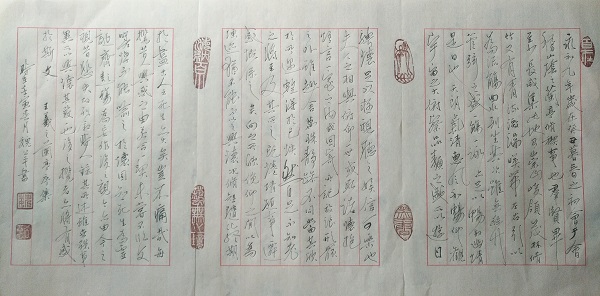 永和九年歲在癸丑暮春之初會于會
稽山陰之蘭亭修禊事也群賢畢
至少長咸集此地有崇山峻領茂林修
竹又有清流激湍映帶左右引以
為流觴曲水列坐其次雖無絲竹
管弦之盛一觴一詠亦足以暢敘幽情
是日也天朗氣清惠風和暢仰觀
宇宙之大俯察品類之盛所以遊目
騁懷足以極視聽之娛信可樂也
夫人之相與俯仰一世或取諸懷抱
悟言一室之內或因寄所託放浪形骸
之外雖趣舍萬殊靜躁不同當其欣
於所遇暫得於己快然自足不知老
之將至及其所之既惓情隨事遷感
慨係之矣向之所欣俛仰之間以為
陳迹猶不能不以之興懷況脩短隨化終期
於盡古人云死生亦大矣豈不痛哉每
攬昔人興感之由若合一契未嘗不臨文
嗟悼不能喻之於懷固知一死生為虛
誕齊彭殤為妄作後之視今亦由今之
視昔悲夫故列敘時人錄其所述雖世殊事
異所以興懷其致一也後之攬者亦將有感
於斯文 王羲之蘭亭序